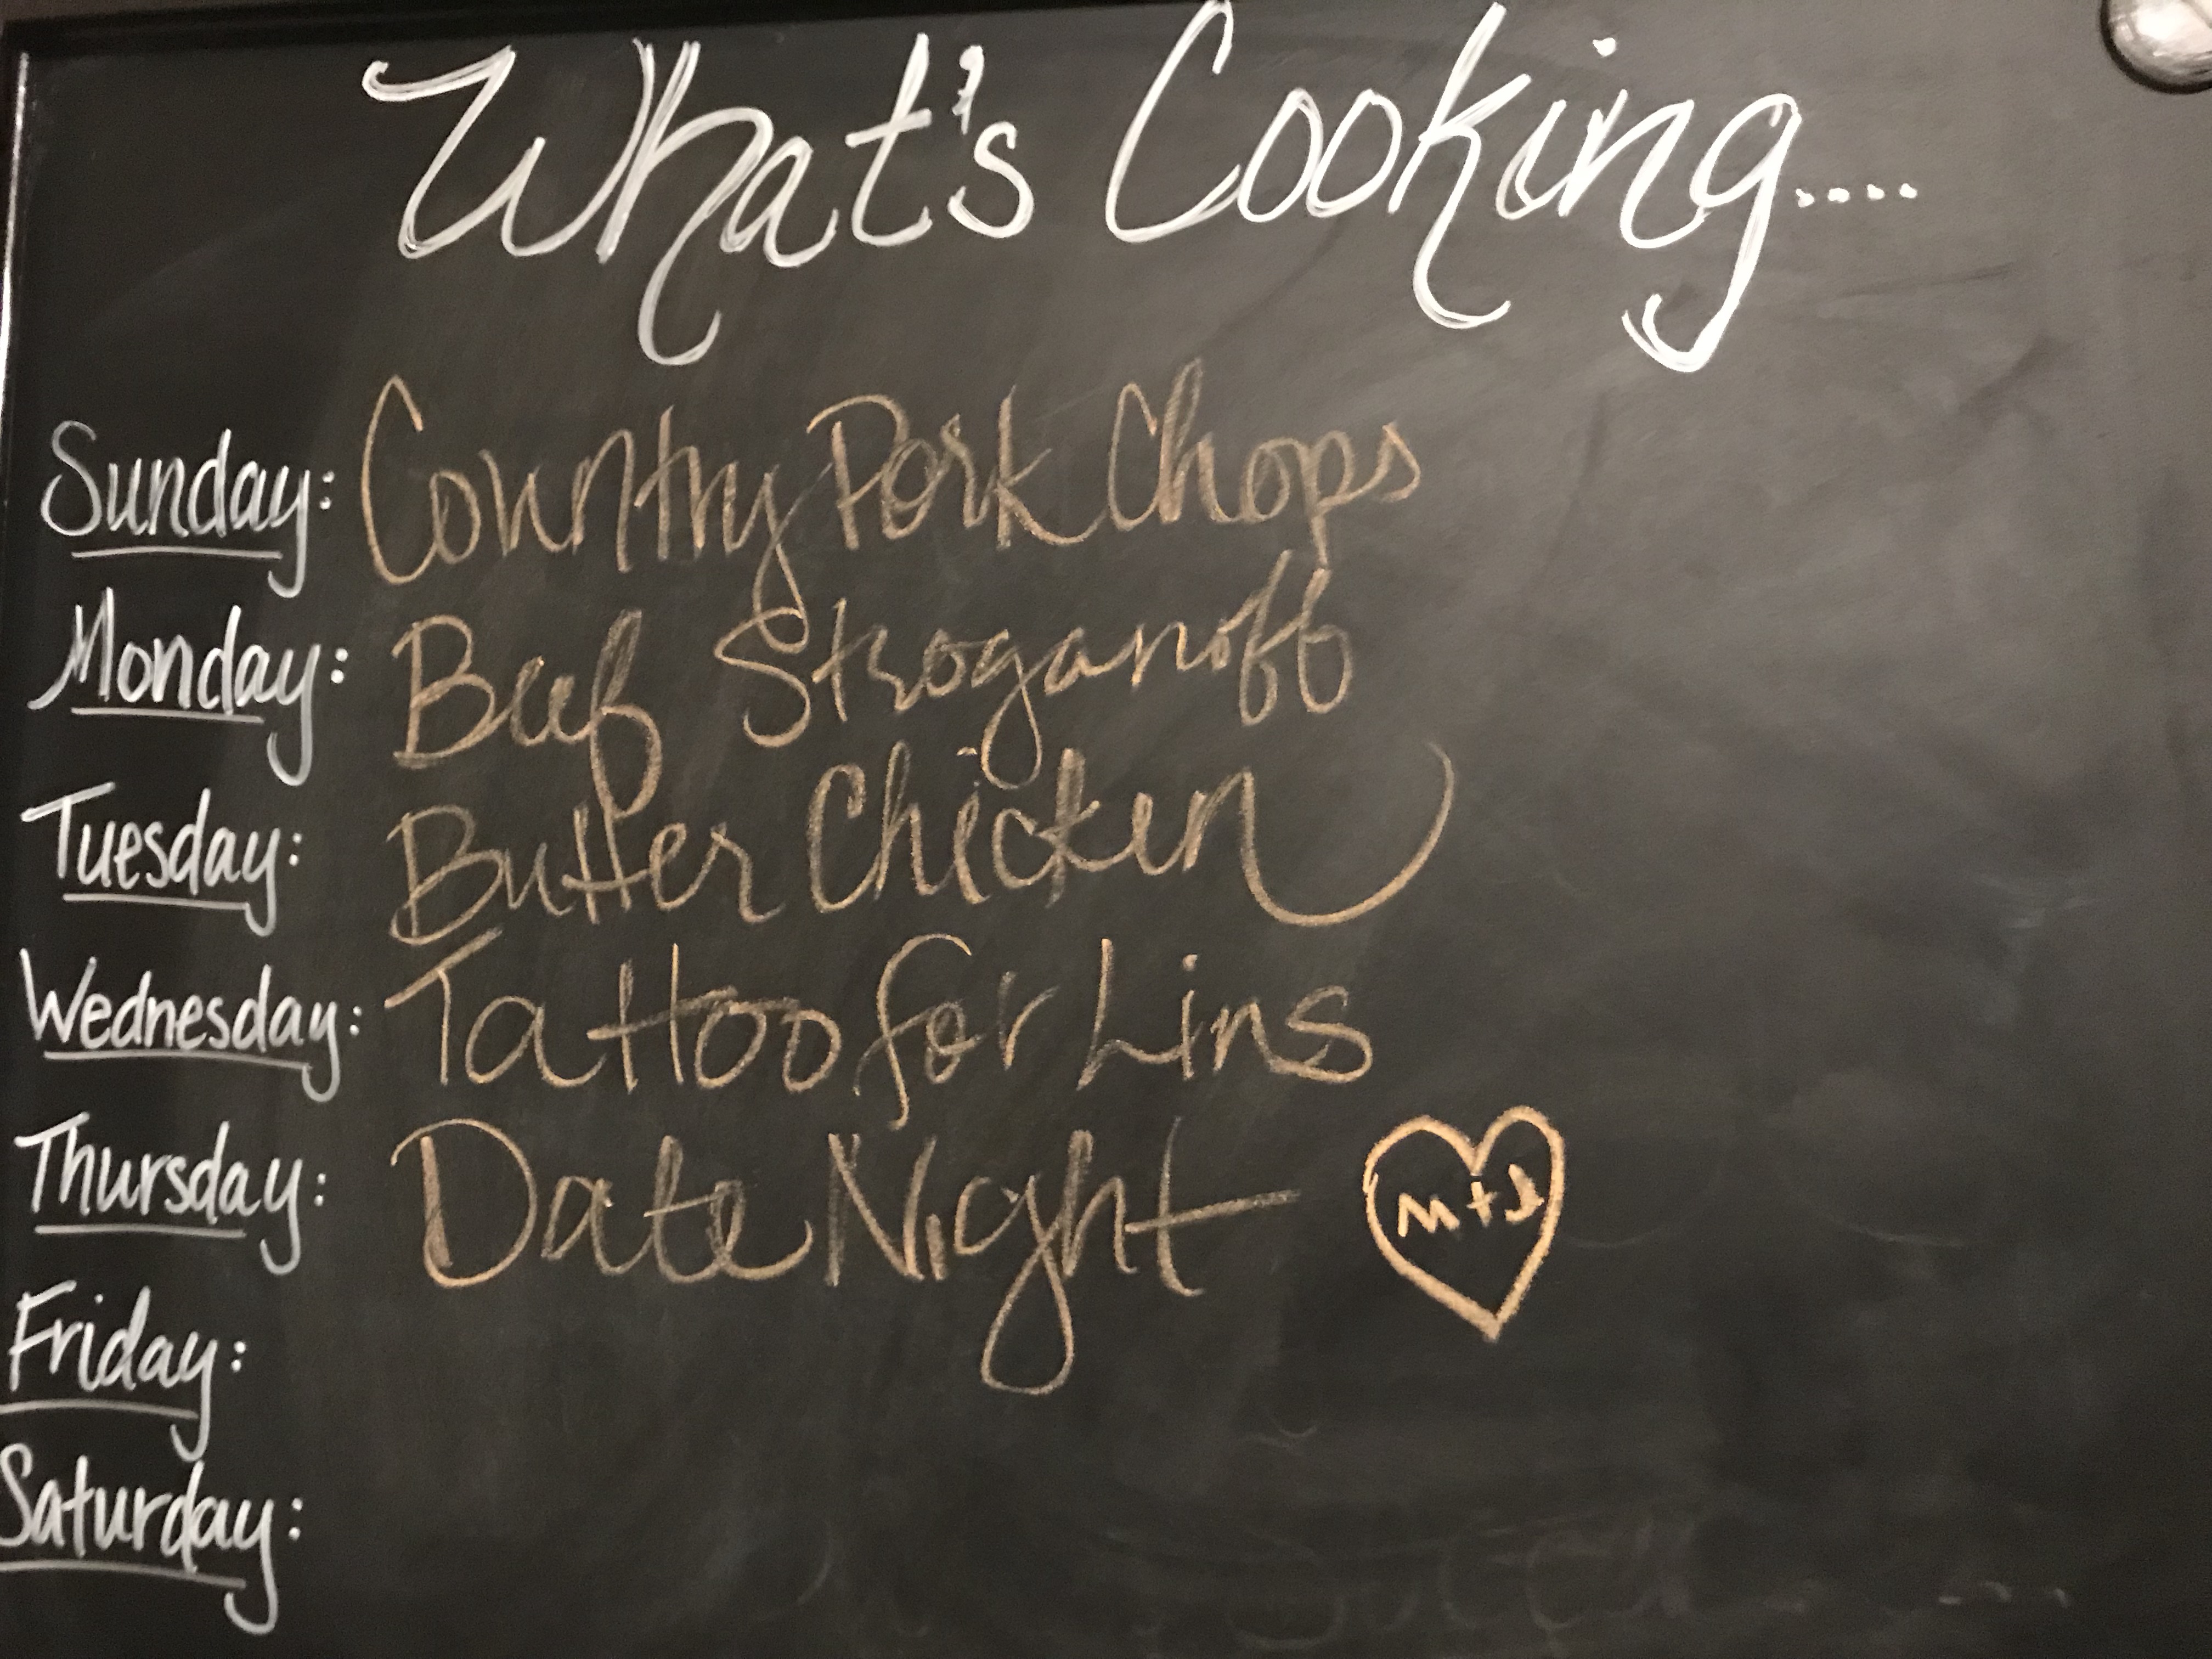 What's Cooking....
Sunday: Country Pork Chops
Monday: Beef Stroganoff
Tuesday: Butter Chicken
Wednesday: Tattoo for Lins
Thursday: Date Night M+J
Friday:
Saturday: